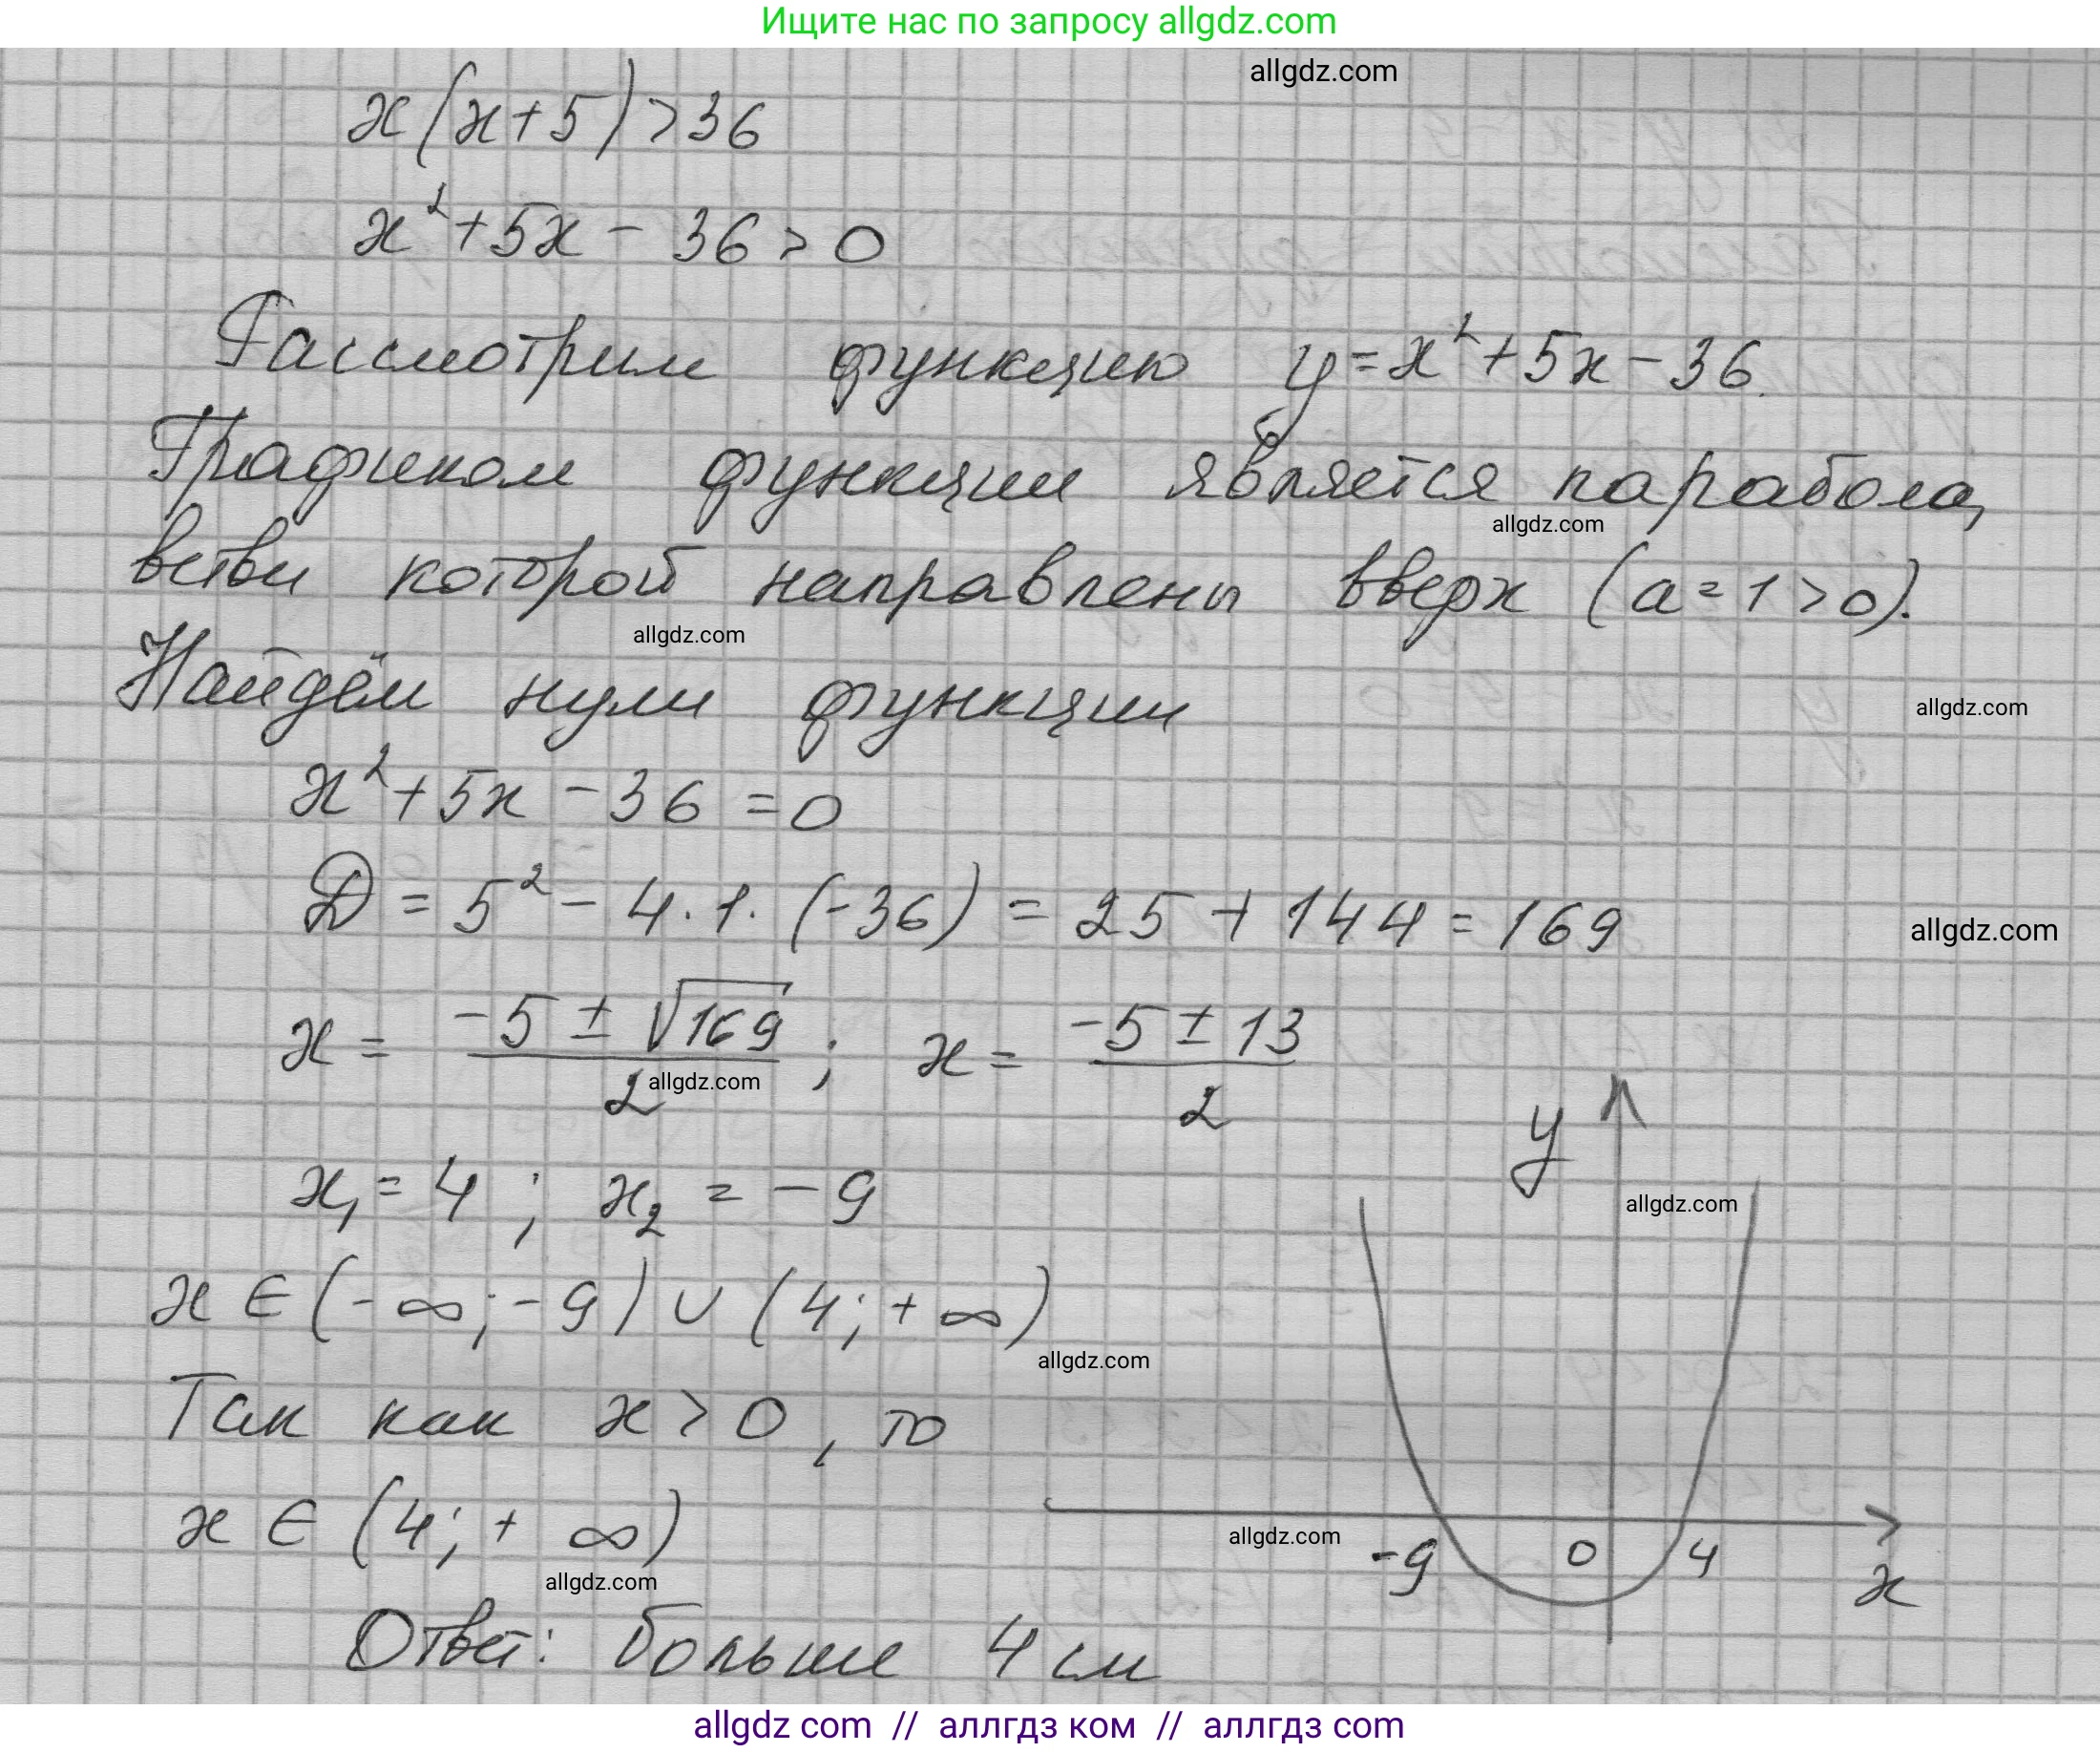 Ищите нас по запросу allgdz.com
allgdz.com
x(x+5)>36
x²+5x-36>0
Рассмотрим функцию y=x²+5x-36.
Графиком функции является парабола,
allgdz.com
ветви которой направлены вверх (a=1>0).
allgdz.com
Найдём нули функции
allgdz.com
x²+5x-36=0
D=5²-4·1·(-36)=25+144=169
allgdz.com
x=(-5±√169)/2; x=(-5±13)/2
allgdz.com
y
x₁=4; x₂=-9
allgdz.com
x∈(-∞;-9)∪(4;+∞)
allgdz.com
Так как x>0, то
x∈(4;+∞)
allgdz.com
-9 0 4 x
allgdz.com
Ответ: больше 4 см
allgdz com // аллгдз ком // аллгдз com